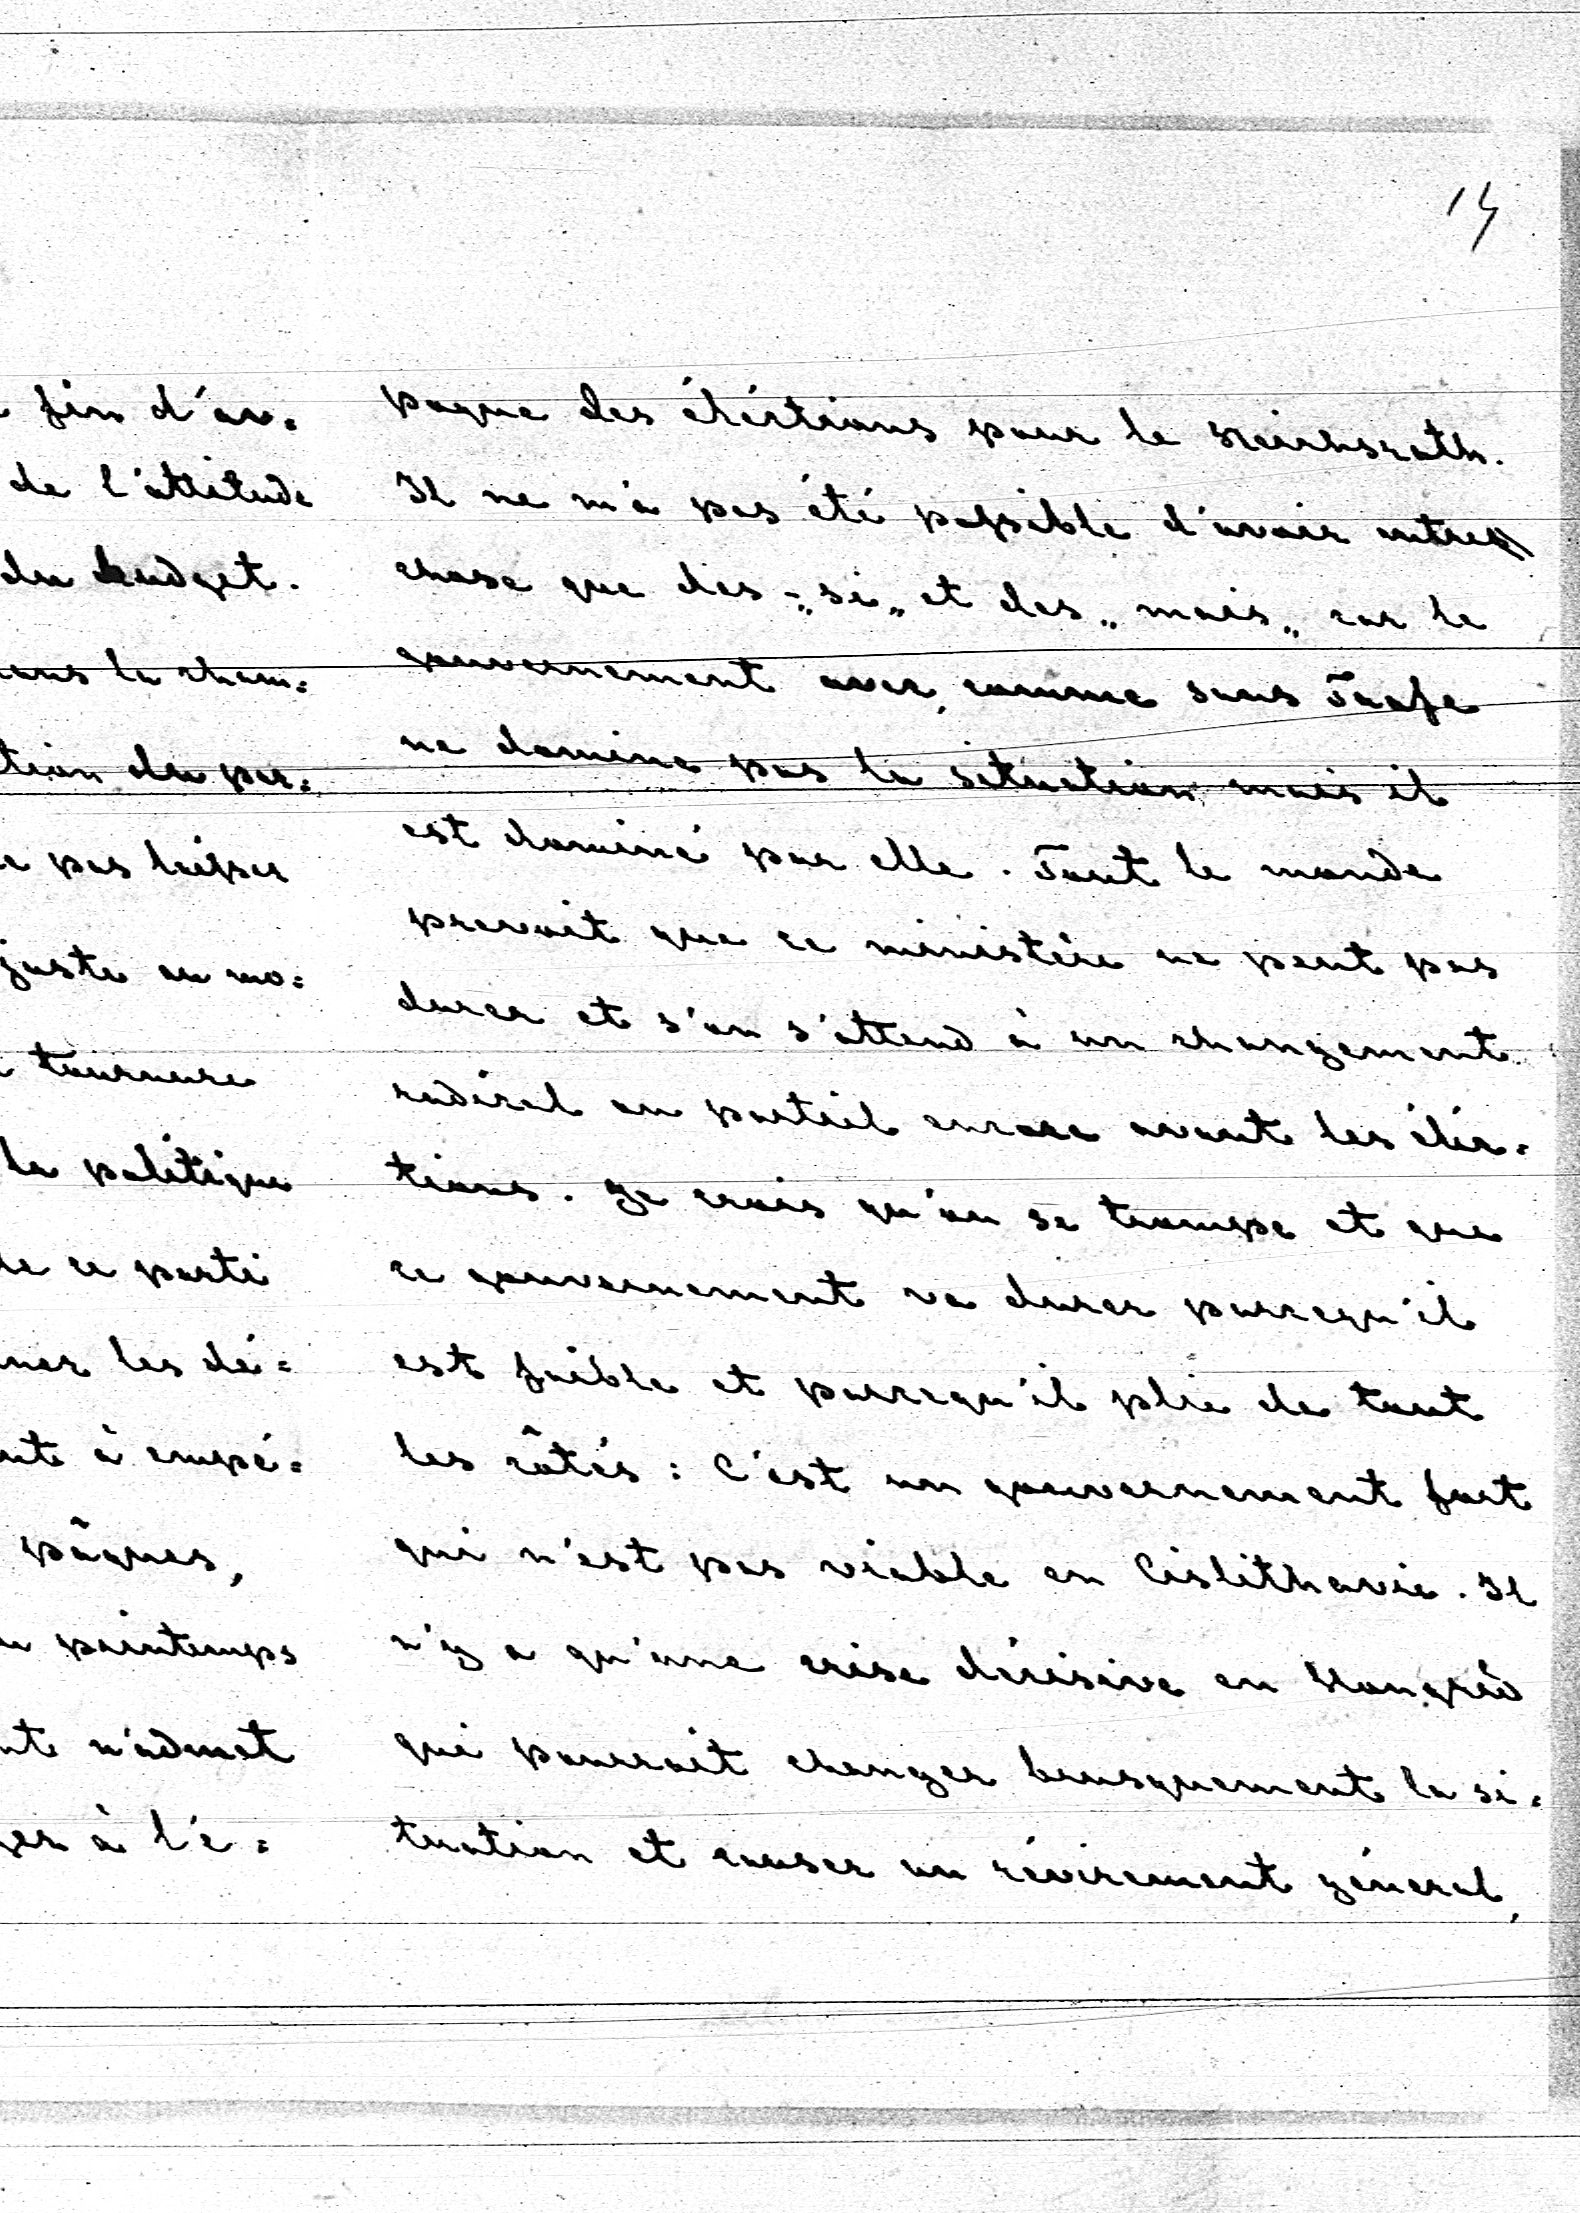 14
fin d'av=
de l'attitude
du budget.
dans la cham=
tion du par=
pas laisser
juste au mo=
tournure
la politique
de ce parti
les dé=
à empé=
pâques,
printemps
n'admet
à l'é=
poque des éléctions pour le Reichsrath.
Il ne m'a pas été possible d'avoir autre
chose que des - „si„ et des „mais„ car le
gouvernement avec, comme sans Taafe
ne domine pas la situation mais il
est dominé par elle. Tout le monde
prevoit que ce ministére ne peut pas
durer et s'on s'attend à un changement
radical ou partiel encore avant les éléc=
tions. Je crois qu'on se trompe et que
ce gouvernement va durer parcequ'il
est faible et parcequ'il plie de tout
les côtés: C'est un gouvernement fort
qui n'est pas viable en Cislithavie. Il
n'y a qu'une crise décisive en Hongrie
qui pourrait changer brusquement la si=
tuation et causer un révirement géneral,